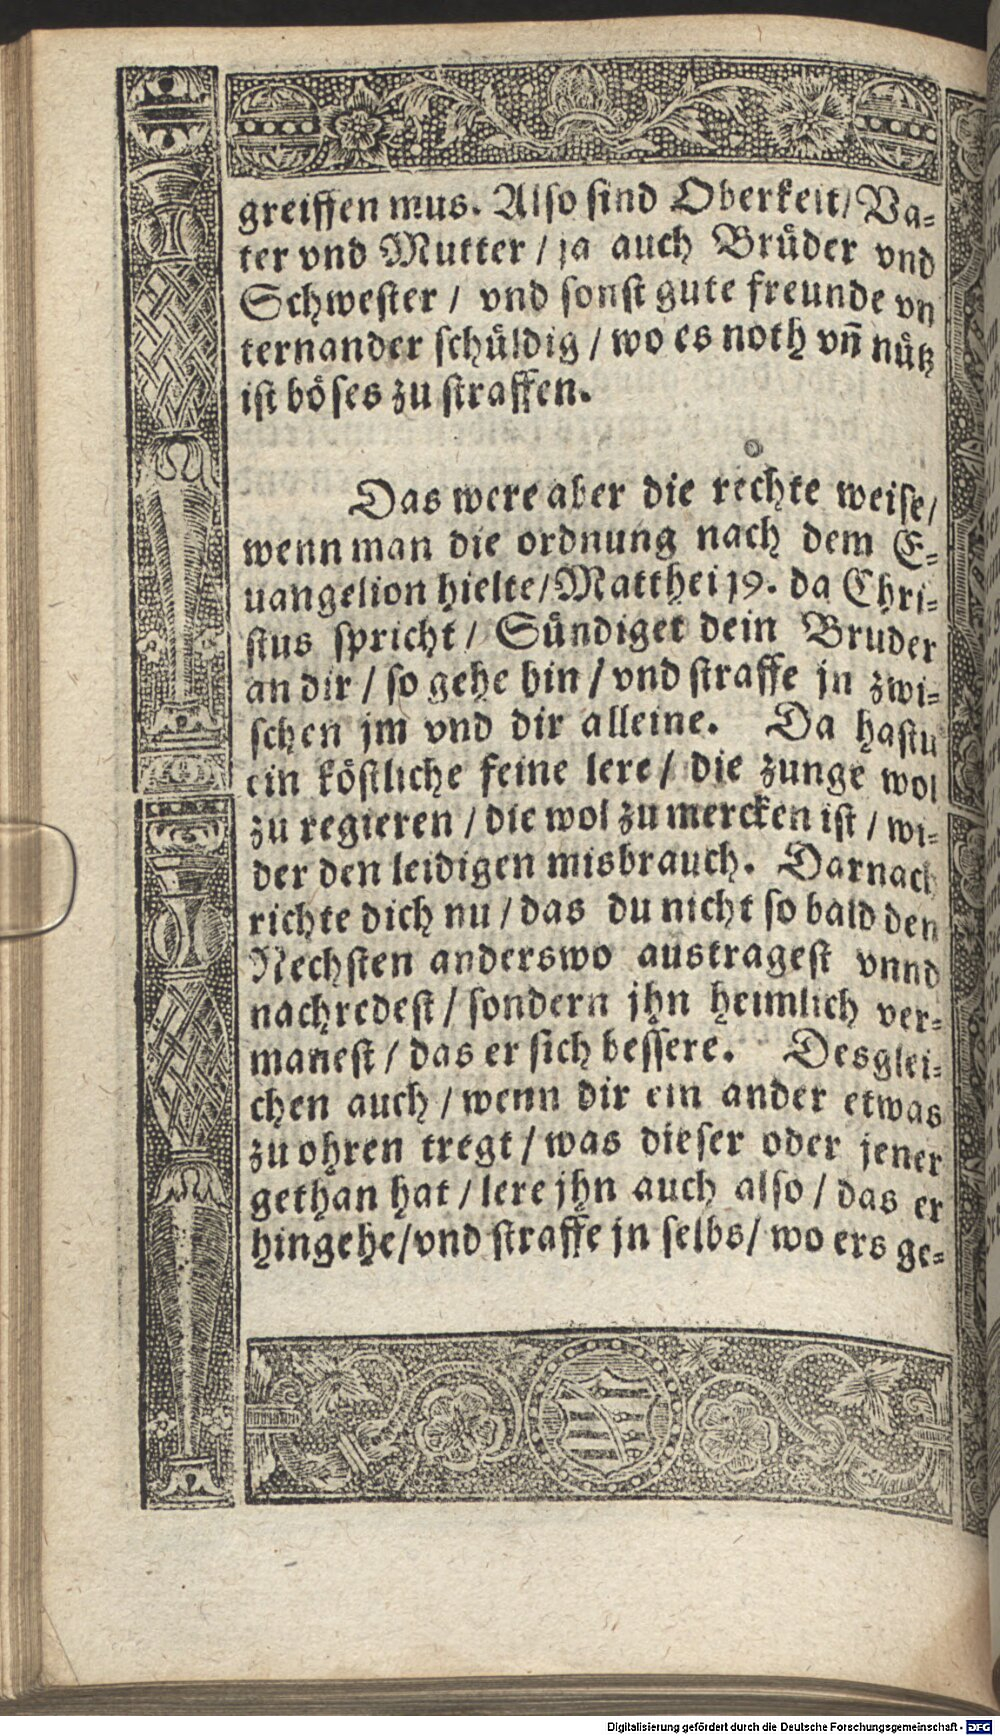 greiffen mus. Also sind Oberkeit/ Va-
ter vnd Mutter / ja auch Brüder vnd
Schwester / vnd sonst gute freunde vn
ternander schüldig / wo es noth vn̄ nütz
ist böses zu straffen.
Das were aber die rechte weise/
wenn man die ordnung nach dem E-
uangelion hielte/ Matthei 19. da Chri-
stus spricht / Sündiget dein Bruder
an dir / so gehe hin / vnd straffe jn zwi-
schen jm vnd dir alleine. Da hastu
ein köstliche feine lere / die zunge wol
zu regieren / die wol zu mercken ist / wi-
der den leidigen misbrauch. Darnach
richte dich nu / das du nicht so bald den
Nechsten anderswo austragest vnnd
nachredest / sondern jhn heimlich ver-
manest / das er sich bessere. Desglei-
chen auch / wenn dir ein ander etwas
zu ohren tregt / was dieser oder jener
gethan hat / lere jhn auch also / das er
hingehe/ vnd straffe jn selbs/ wo ers ge-
Digitalisierung gefördert durch die Deutsche Forschungsgemeinschaft - DFG